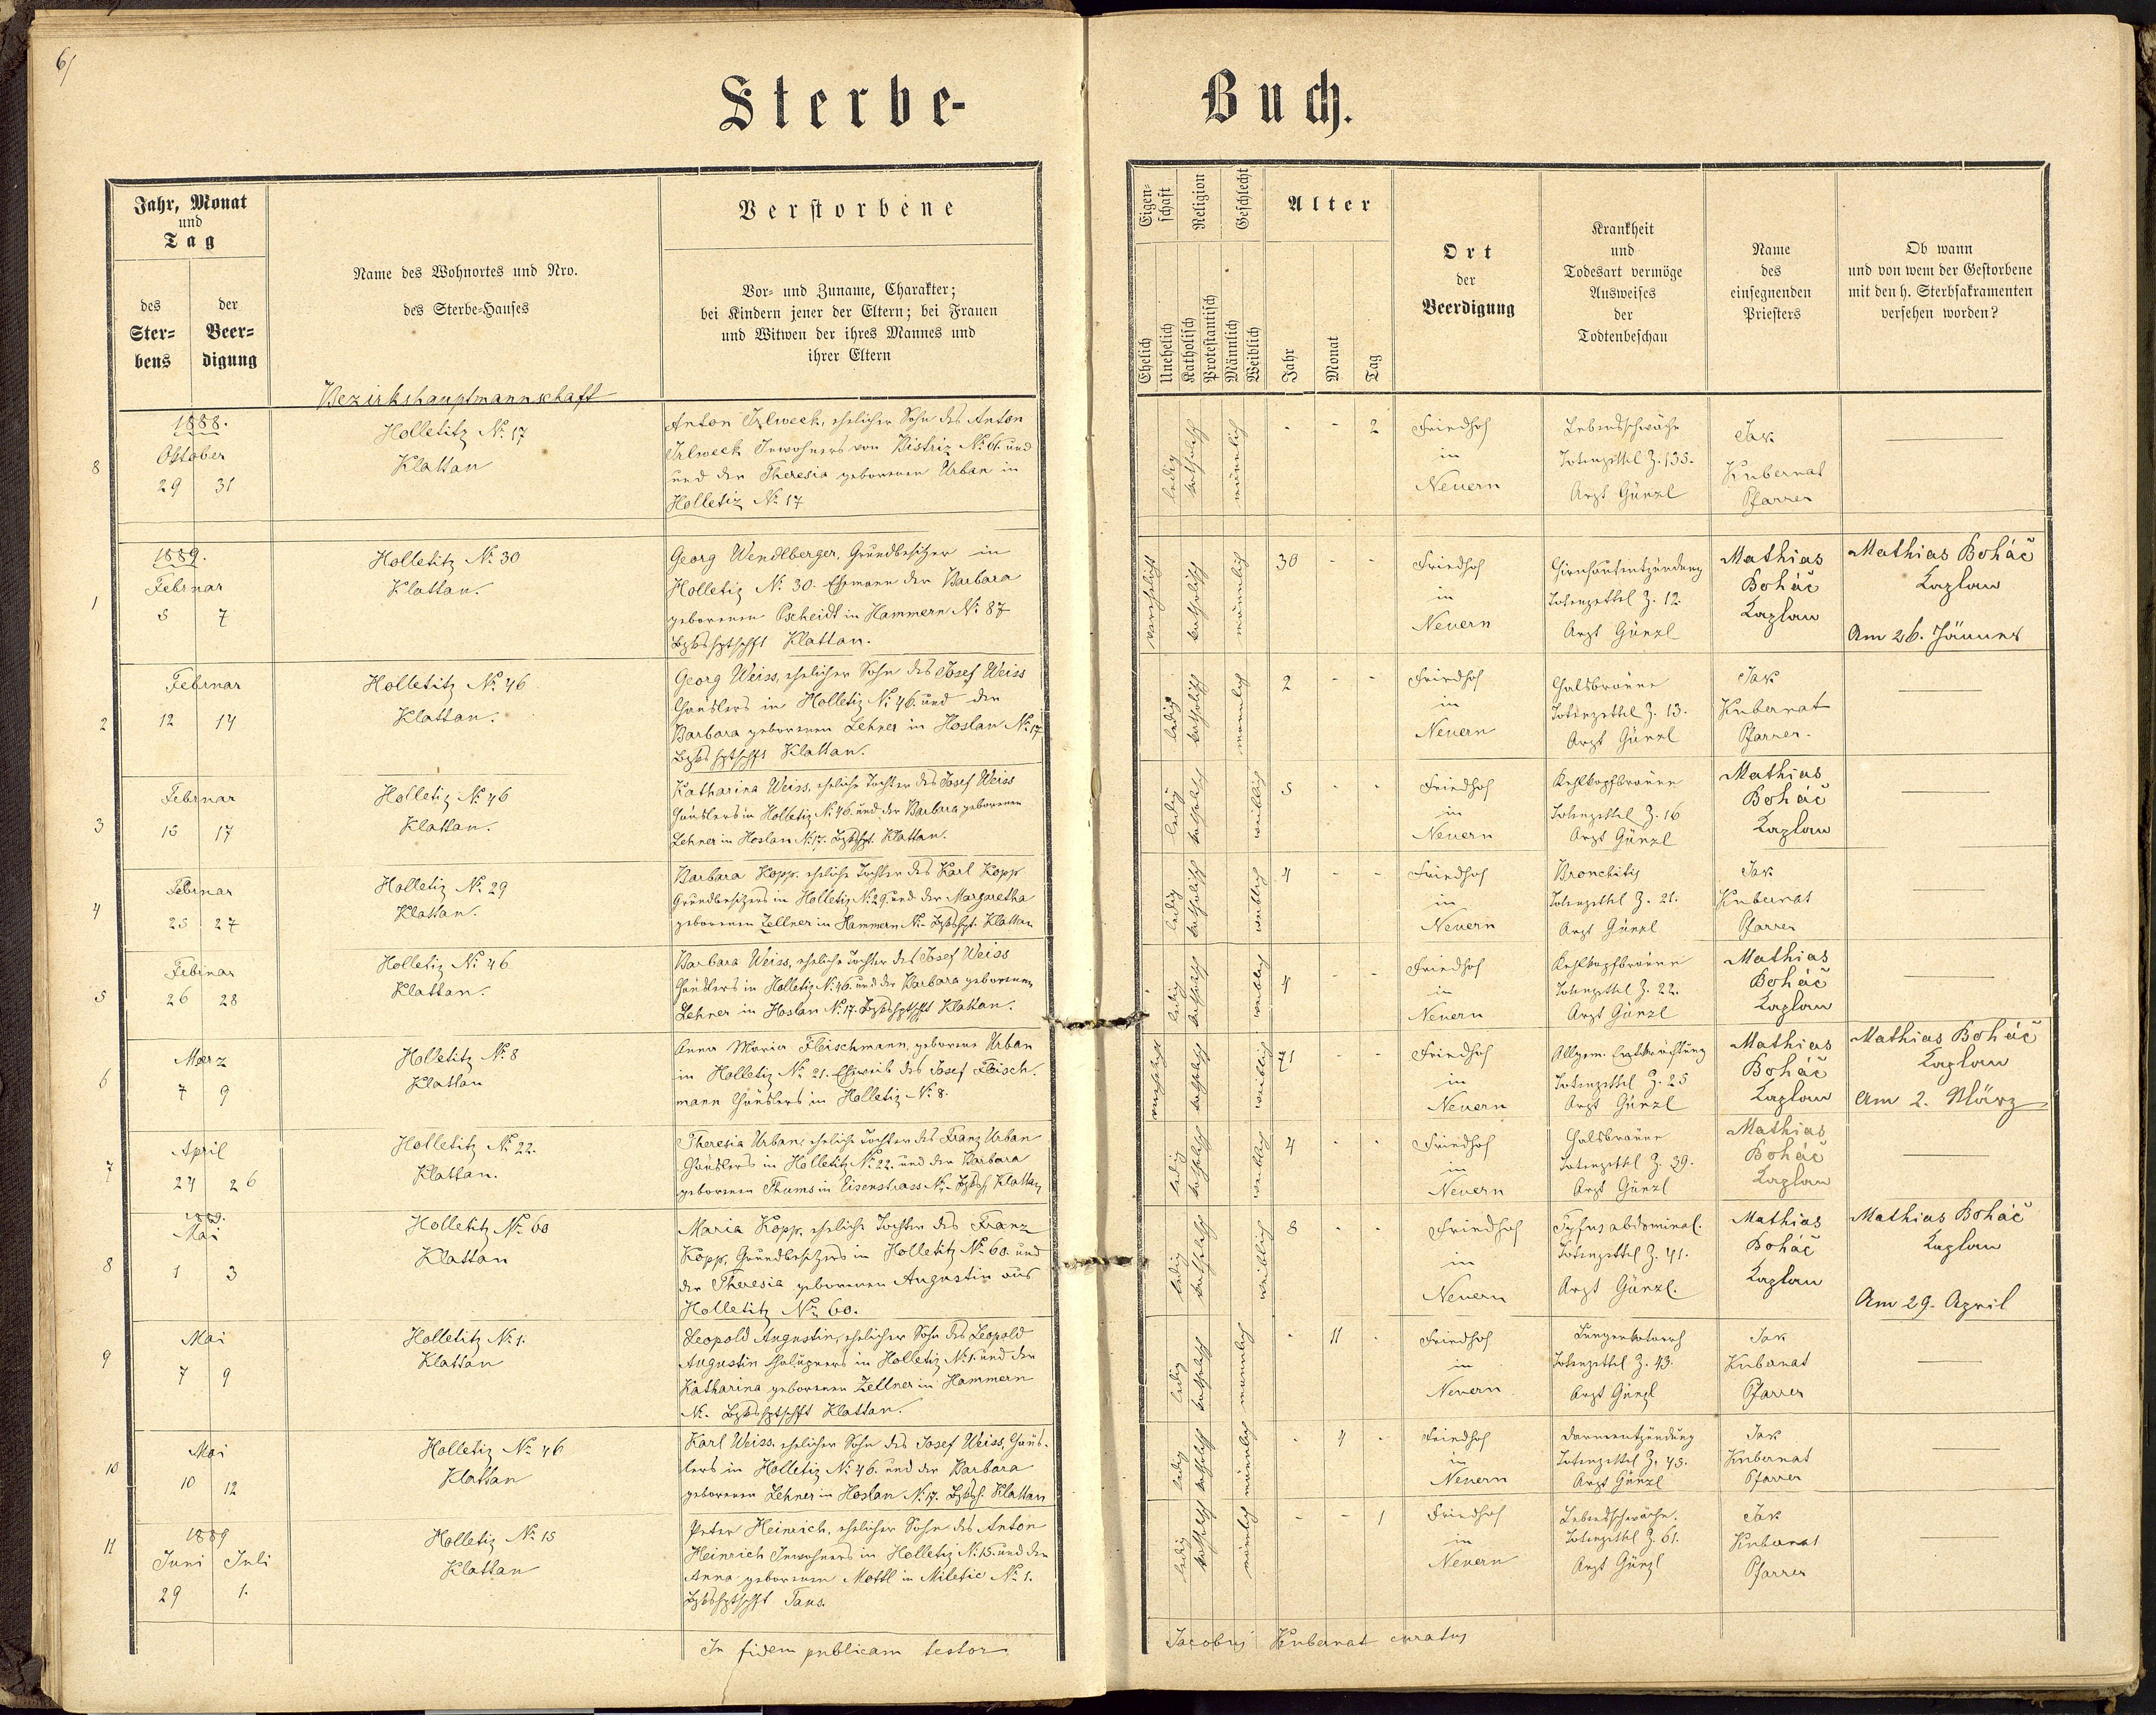 6/
Sterbe-
Buch.
Jahr, Monat
und
Tag
des
Ster-
bens
der
Beer-
digung
Name des Wohnortes und Nro.
des Sterbe-Hauses
Bezirkshauptmannschaft
Verstorbene
Vor- und Zuname, Charakter;
bei Kindern jener der Eltern; bei Frauen
und Witwen der ihres Mannes und
ihrer Eltern
Eigen-
schaft
Religion
Geschlecht
Alter
Ehelich
Unehelich
Katholisch
Protestantisch
Männlich
Weiblich
Jahr
Monat
Tag
Ort
der
Beerdigung
Krankheit
und
Todesart vermöge
Ausweises
der
Todtenbeschau
Name
des
einsegnenden
Priesters
Ob wann
und von wem der Gestorbene
mit den h. Sterbsakramenten
versehen worden?
8
1888.
Oktober
29 31
Holletitz No. 17
Klattau
Anton Irlweck, ehelicher Sohn des Anton
Irlweck Inwohners von Bistriz No. 6. und
und der Theresia geborenen Urban in
Holletiz No. 17
ledig
katholisch
männlich
- - 2
Friedhof
in
Neuern
Lebensschwäche
Totenzettel Z. 135.
Arzt Günzl
Jak
Kubernat
Pfarrer
1
1889.
Februar
5 7
Holletitz No. 30
Klattau.
Georg Wendlberger, Grundbesitzer in
Holletiz No. 30. Ehemann der Barbara
geborenen Pscheidt in Hammern No. 87
Bzkshptschft Klattau.
verehelicht
katholisch
männlich
30 - -
Friedhof
in
Neuern
Hirnhautentzündung
Totenzettel Z. 12.
Arzt Günzl
Mathias
Boháč
Kaplan
Mathias Boháč
Kaplan
Am 26. Jänner
2
Februar
12 14
Holletitz No. 46
Klattau.
Georg Weiss, ehelicher Sohn des Josef Weiss
Häuslers in Holletiz No. 46. und der
Barbara geborenen Lehner in Hoslau No. 17
Bzkshptschft Klattau.
ledig
katholisch
männlich
2 - -
Friedhof
in
Neuern
Halsbräune
Totenzettel Z. 13.
Arzt Günzl
Jak
Kubernat
Pfarrer.
3
Februar
15 17
Holletiz No. 46
Klattau.
Katharina Weiss, eheliche Tochter des Josef Weiss
Häuslers in Holletiz No. 46. und der Barbara geborenen
Lehner in Hoslau No. 17. Bzkshpt. Klattau.
ledig
katholisch
weiblich
5 - -
Friedhof
in
Neuern
Kehlkopfbräune
Totenzettel Z. 16
Arzt Günzl
Mathias
Boháč
Kaplan
4
Februar
25 27
Holletiz No. 29
Klattau.
Barbara Kopp, eheliche Tochter des Karl Kopp
Grundbesitzers in Holletiz No. 29. und der Margaretha
geborenen Zellner in Hammern No. - Bzkshpt. Klattau
ledig
katholisch
weiblich
4 - -
Friedhof
in
Neuern
Bronchitis
Totenzettel Z. 21.
Arzt Günzl
Jak
Kubernat
Pfarrer
5
Februar
26 28
Holletiz No. 46
Klattau.
Barbara Weiss, eheliche Tochter des Josef Weiss
Häuslers in Holletiz No. 46. und der Barbara geborenen
Lehner in Hoslau No. 17. Bzkshptschft Klattau.
ledig
katholisch
weiblich
4 - -
Friedhof
in
Neuern
Kehlkopfbräune
Totenzettel Z. 22.
Arzt Günzl
Mathias
Boháč
Kaplan
6
Maerz
7 9
Holletitz No. 8
Klattau
Anna Maria Fleischmann, geborene Urban
in Holletiz No. 21. Eheweib des Josef Fleisch-
mann Häuslers in Holletiz No. 8.
verehelicht
katholisch
weiblich
71 - -
Friedhof
in
Neuern
Allgem. Entkräftung
Totenzettel Z. 25
Arzt Günzl
Mathias
Boháč
Kaplan
Mathias Boháč
Kaplan
Am 2. März
7
April
24 26
Holletitz No. 22.
Klattau.
Theresia Urban, eheliche Tochter des Franz Urban
Häuslers in Holletitz No. 22. und der Barbara
geborenen Thums in Eisenstrass No. - Bzksh. Klattau
ledig
katholisch
weiblich
4 - -
Friedhof
in
Neuern
Halsbräune
Totenzettel Z. 39.
Arzt Günzl
Mathias
Boháč
Kaplan
8
1889.
Mai
1 3
Holletitz No. 60
Klattau
Maria Kopp, eheliche Tochter des Franz
Kopp, Grundbesitzers in Holletitz No. 60. und
der Theresia geborenen Augustin aus
Holletitz No. 60.
ledig
katholisch
weiblich
8 - -
Friedhof
in
Neuern
Tyfus abdominal.
Totenzettel Z. 41.
Arzt Günzl.
Mathias
Boháč
Kaplan
Mathias Boháč
Kaplan
Am 29. April
9
Mai
7 9
Holletitz No. 1.
Klattau
Leopold Augustin, ehelicher Sohn des Leopold
Augustin Chaluppners in Holletiz No. 1. und der
Katharina geborenen Zellner in Hammern
No. - Bzkshptschft Klattau.
ledig
katholisch
männlich
- 11 -
Friedhof
in
Neuern
Lungenkatarrh
Totenzettel Z. 43.
Arzt Günzl
Jak
Kubernat
Pfarrer
10
Mai
10 12
Holletiz No. 46
Klattau
Karl Weiss, ehelicher Sohn des Josef Weiss, Häus-
lers in Holletiz No. 46. und der Barbara
geborenen Lehner in Hoslau No. 17. Bzksh. Klattau
ledig
katholisch
männlich
- 4 -
Friedhof
in
Neuern
Darmentzündung
Totenzettel Z. 45.
Arzt Günzl
Jak
Kubernat
Pfarrer
11
1889
Juni Juli
29 1.
Holletiz No. 15
Klattau
Peter Heinrich, ehelicher Sohn des Anton
Heinrich Inwohners in Holletiz No. 15. und der
Anna geborenen Mottl in Miletic No. 1.
Bzkshptschft Taus.
ledig
katholisch
männlich
- - 1
Friedhof
in
Neuern
Lebensschwäche.
Totenzettel Z. 61.
Arzt Günzl
Jak
Kubernat
Pfarrer
In fidem publicam testor
Jacobus Kubernat curatus